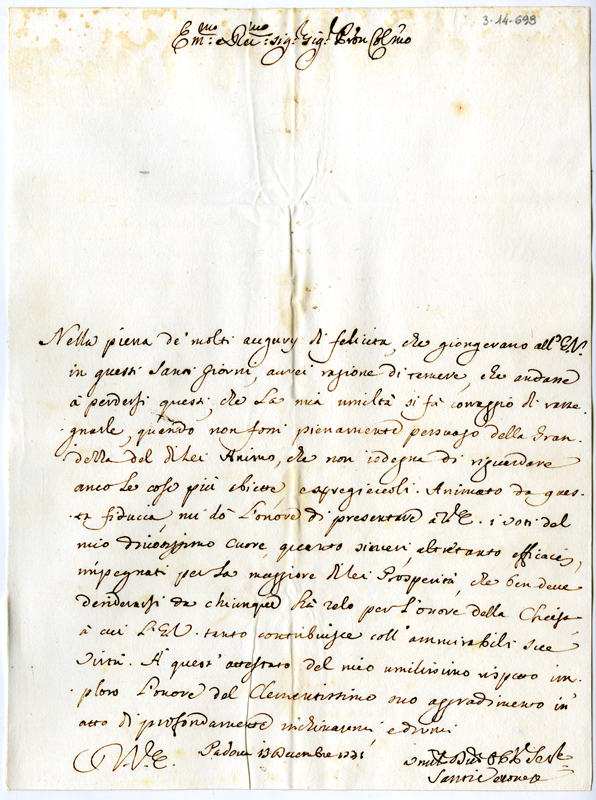 3-14-698
Em:mo e Rev:mo Sig:r Sig:r Pron Col:mo
Nella piena de' molti augurj di felicità, che giongerano all'E.V.
in questi Santi Giorni, avrei ragione di temere, che andasse
à perdersi questi, che la mia umiltà si fà coraggio di rasse-
gnarle, quando non fossi pienamente persuaso della Gran-
dezza del di Lei Animo, che non isdegna di riguardare
anco le cose più abiette, e spregievoli. Animato da ques-
ta fiducia, mi dò l'onore di presentare a V.E. i voti del
mio divotissimo cuore, quanto sinceri, altretanto efficaci,
impegnati per la maggiore di lei Prosperità, che ben deve
desiderarsi da chiunque hà zelo per l'onore della Chiesa,
à cui l'E.V. tanto contribuisce coll'ammirabili sue
Virtù. A quest'attestato del mio umilissimo rispetto im-
ploro l'onore del Clementissimo suo aggradimento in
atto di profondamente inchinarmi, e dirmi
Di V.E. Padova 13 Decembre 1731
Santi Veronese